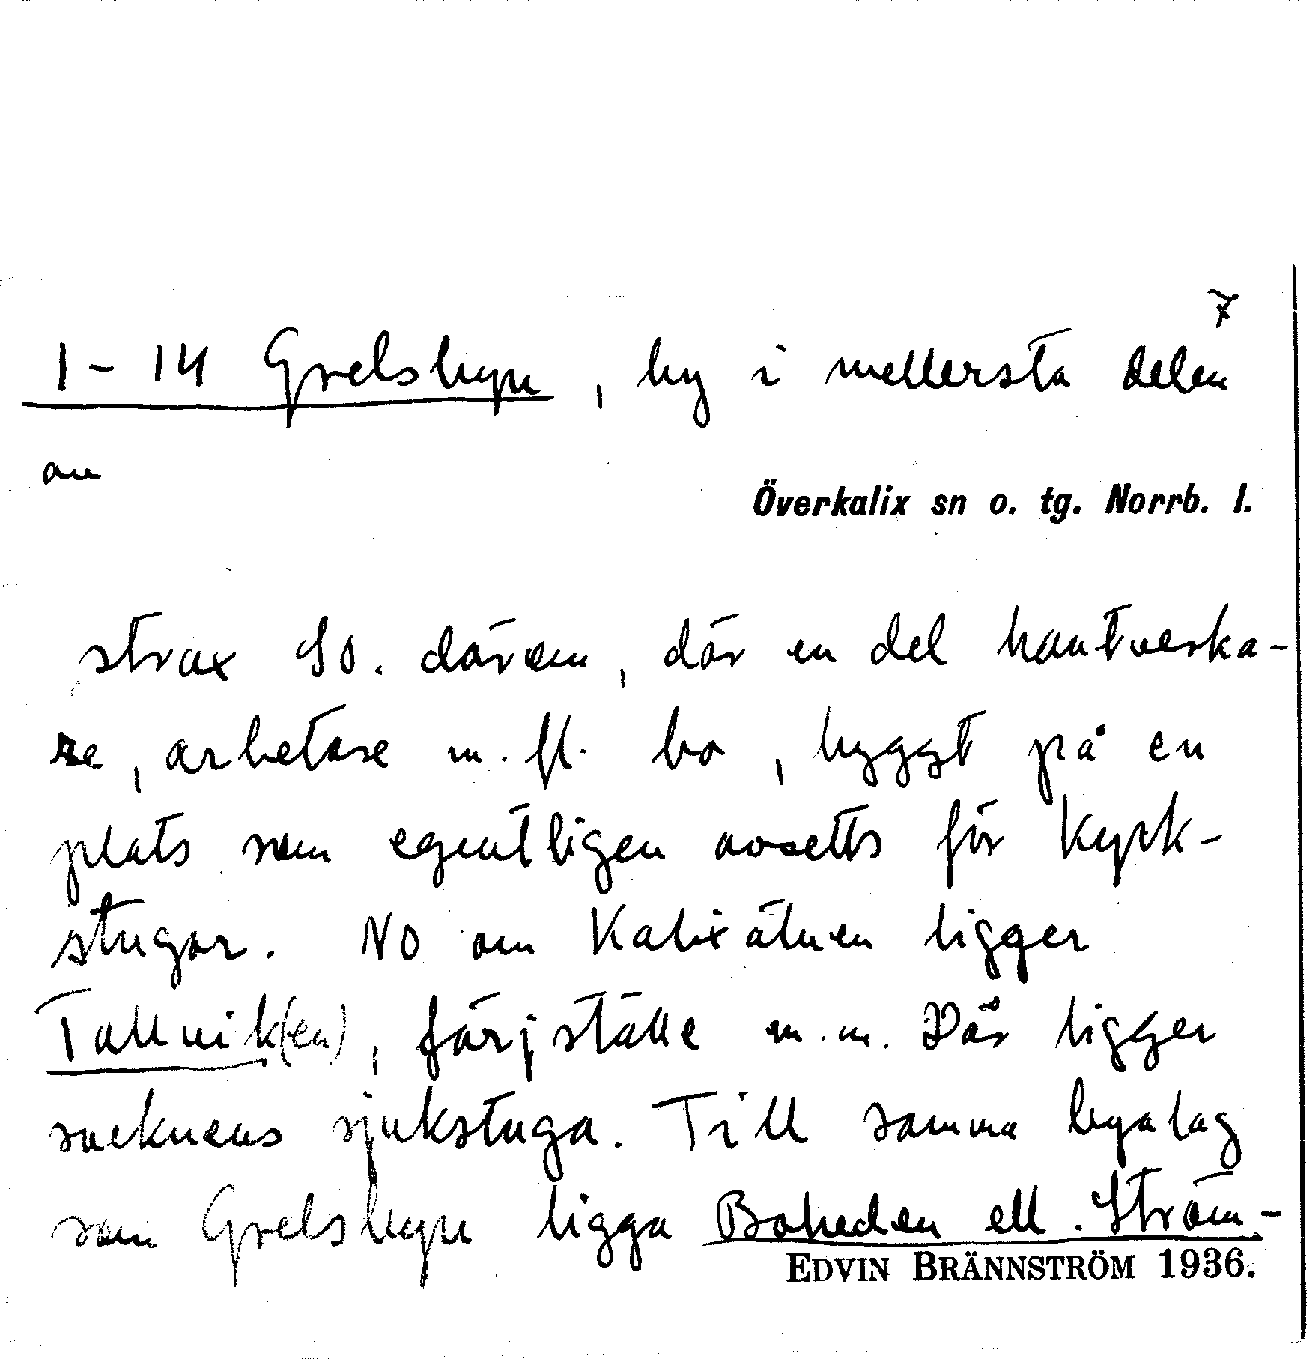 7
1-14 Grelsbyn, by i mellersta delen
av
Överkalix sn o. tg. Norrb. l.
strax SO. därom, där en del hantverka-
re, arbetare m. fl. bo, byggt på en
plats som egentligen avsetts för kyrk-
stugor. NO om Kalixälven ligger
Tallvik(en), färjställe m.m. Där ligger
socknens sjukstuga. Till samma byalag
som Grelsbyn ligga Boheden ell. Ström-
EDVIN BRÄNNSTRÖM 1936.